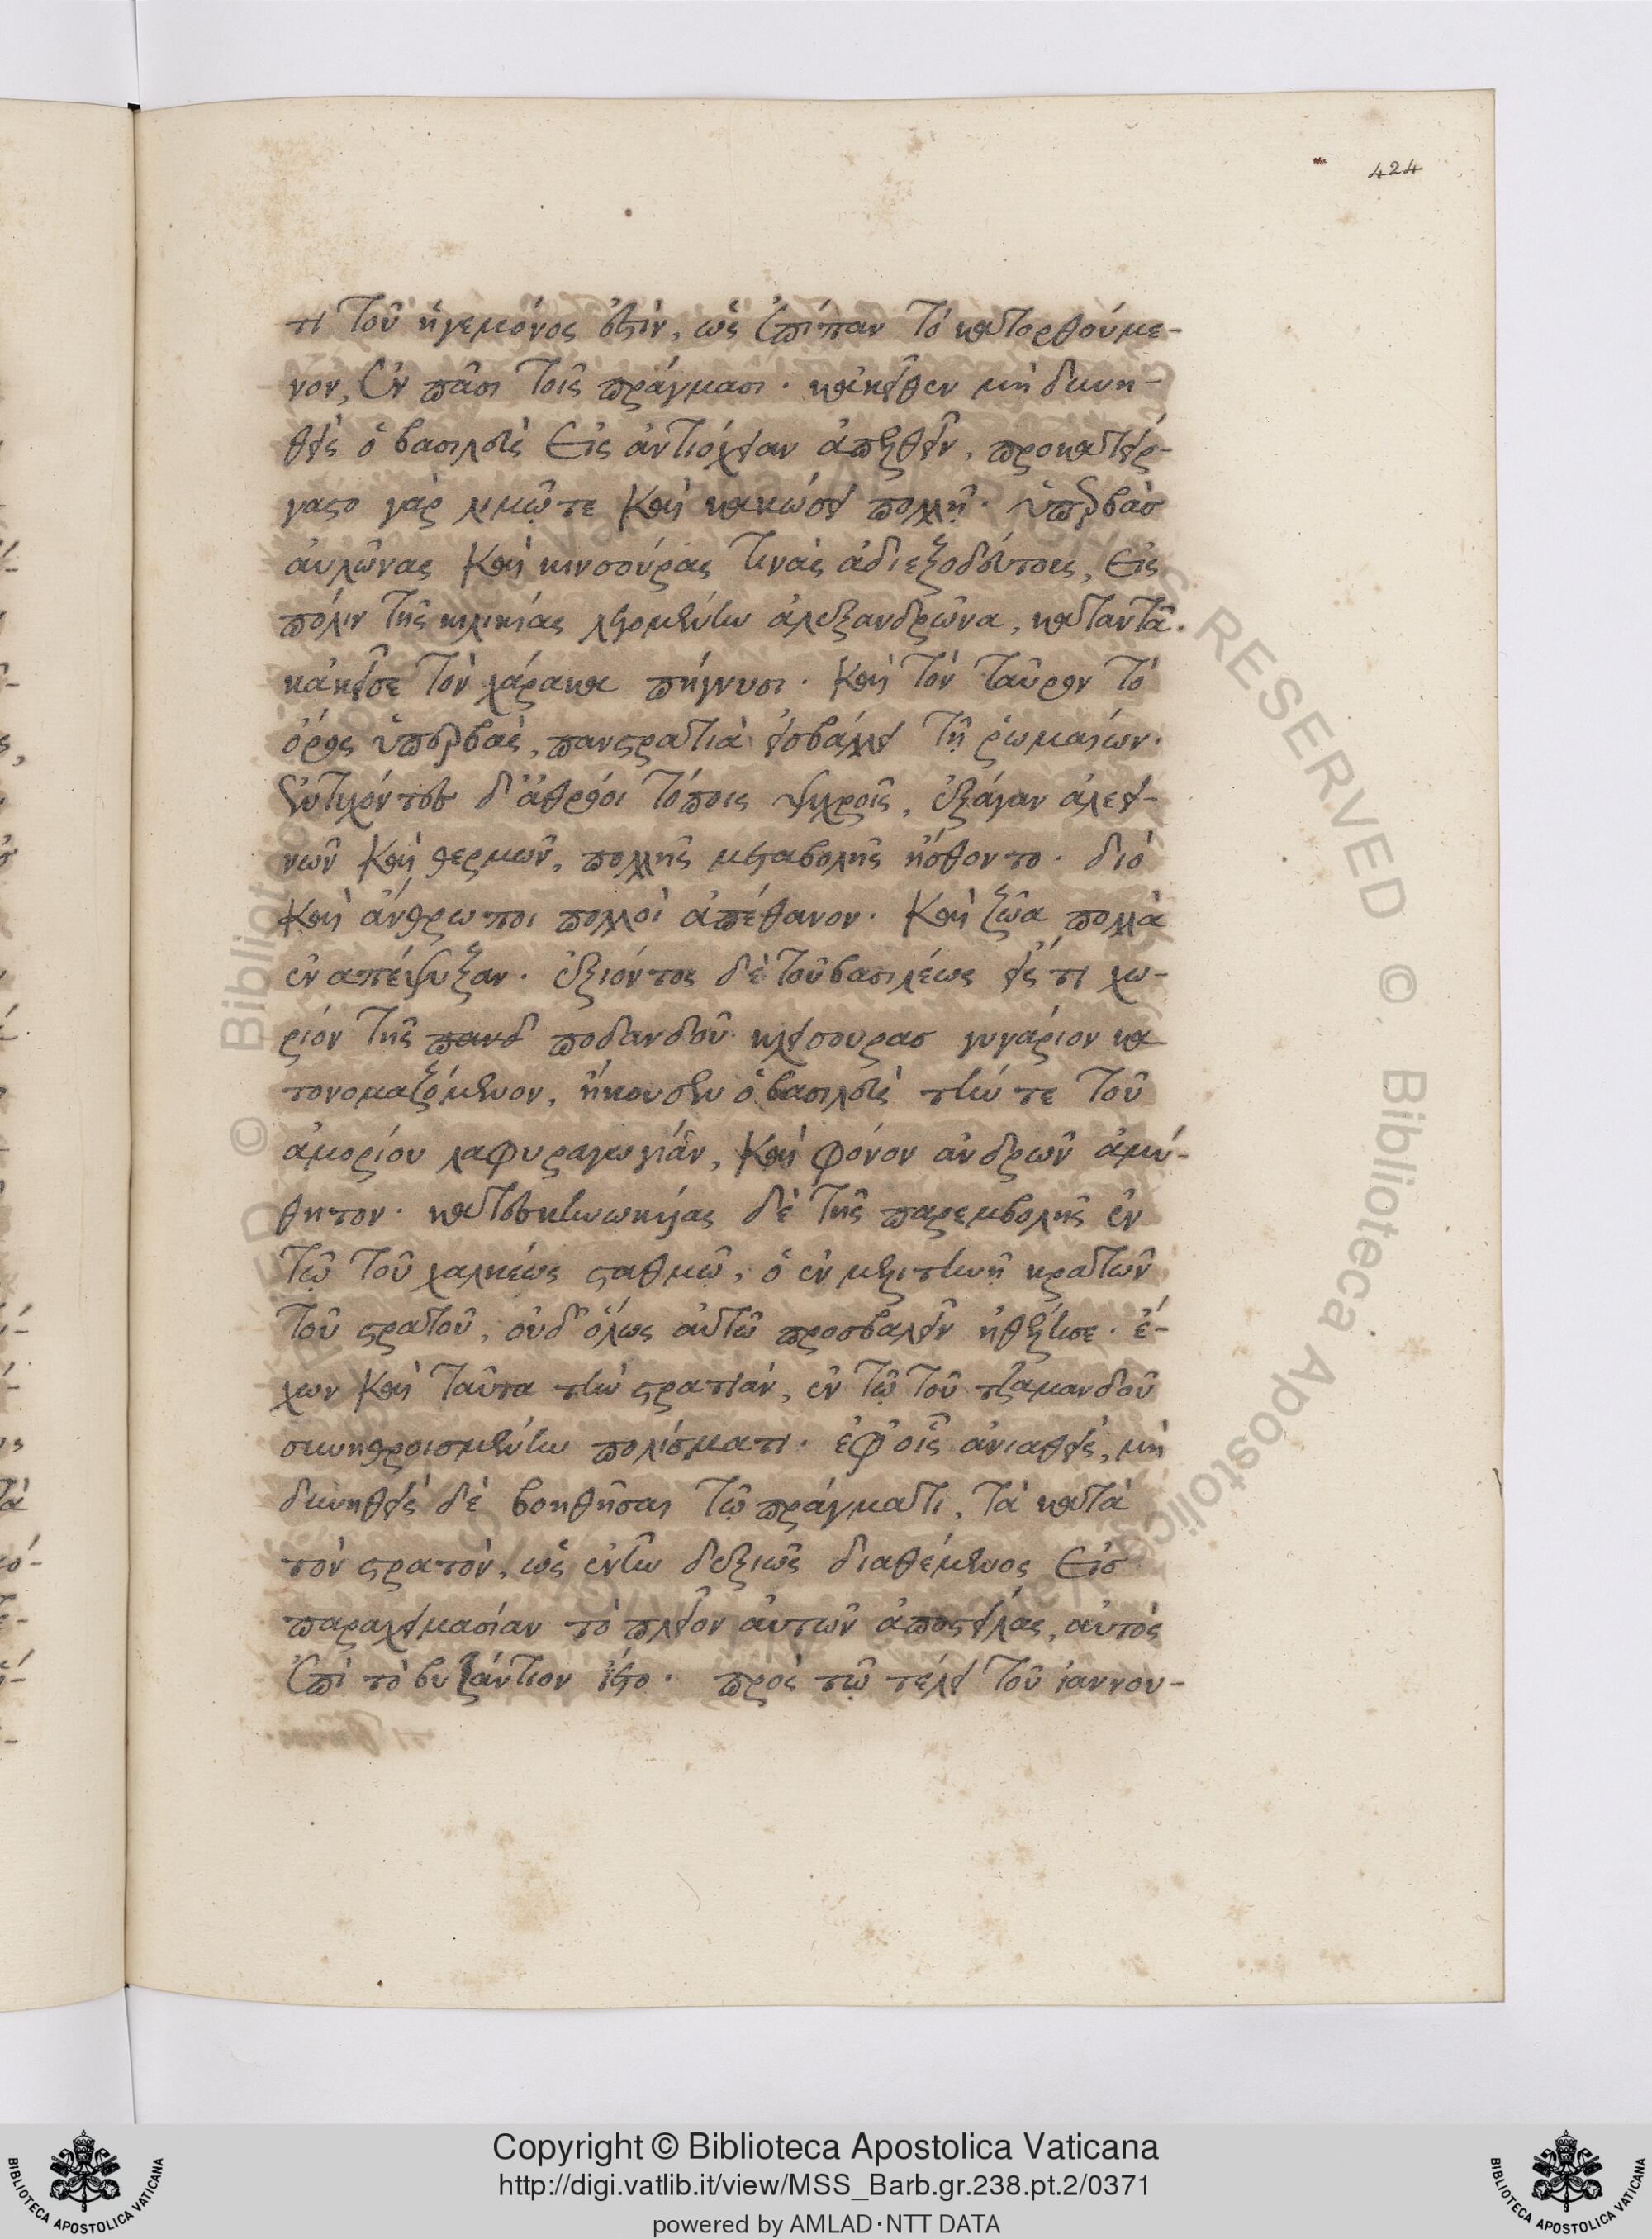 424
τι τοῦ ἡγεμόνος ἐστὶν, ὡς ἐπίπαν τὸ κατορθούμε-
νον, ἐν πᾶσι τοῖς πράγμασι. κἀκεῖθεν μὴ δυνη-
θεὶς ὁ βασιλεὺς εἰς ἀντιόχειαν ἀπελθεῖν, προκατείρ-
γαστο γὰρ λιμῷ τε καὶ κακώσει πολλῇ. ὑπερβὰσ
αὐλῶνας καὶ κινσούρας τινὰς ἀδιεξοδεύτους, εἰς
πόλιν τῆς κιλικίας λεγομένην ἀλεξανδρῶνα, καταντᾶ.
κἀκεῖσε τὸν χάρακα πήγνυσι. καὶ τὸν ταῦρον τὸ
ὄρος ὑπερβὰς, πανστρατιὰ εἰσβάλλει τῆ ῥωμαίων.
ἐντυχόντες δ' ἀθρόοι τόποις ψυχροῖς, ἐξάγαν ἀλεει-
νῶν καὶ θερμῶν, πολλῆς μεταβολῆς ἤσθοντο. διὸ
καὶ ἄνθρωποι πολλοὶ ἀπέθανον. καὶ ζῶα πολλὰ
ἐναπέψυξαν. ἐξιόντος δὲ τοῦ βασιλέως εἴς τι χω-
ρίον τῆς πανδ ποδανδοῦ κλεισουρασ γυνάριον κα
τονομαζόμενον, ἤκουσεν ὁ βασιλεὺς τήν τε τοῦ
ἀμορίου λαφυραγωγίαν, καὶ φόνον ἀνδρῶν ἀμύ-
θητον. κατεσκηνωκυίας δὲ τῆς παρεμβολῆς ἐν
τῷ τοῦ χαλκέως σταθμῷ, ὁ ἐν μελιτηνῇ κρατῶν
τοῦ στρατοῦ, οὐδ' ὅλως αὐτῶ προσβαλεῖν ἠθέλησε. ἔ-
χων καὶ ταῦτα τὴν στρατιὰν, ἐν τῷ τοῦ τζαμανδοῦ
συνηθροισμένην πολίσματι. ἐφ' οἷς ἀνιαθεὶς, μὴ
δυνηθεὶς δὲ βοηθῆσαι τῷ πράγματι, τὰ κατὰ
τὸν στρατὸν, ὡς ἐνῆν δεξιῶς διαθέμενος εἰσ
παραχειμασίαν τὸ πλεῖον αὐτῶν ἀποστείλας, αὐτὸς
ἐπὶ τὸ βυζάντιον ἵετο. πρὸς τῷ τέλει τοῦ ἰαννου-
Copyright © Biblioteca Apostolica Vaticana
http://digi.vatlib.it/view/MSS_Barb.gr.238.pt.2/0371
powered by AMLAD·NTT DATA